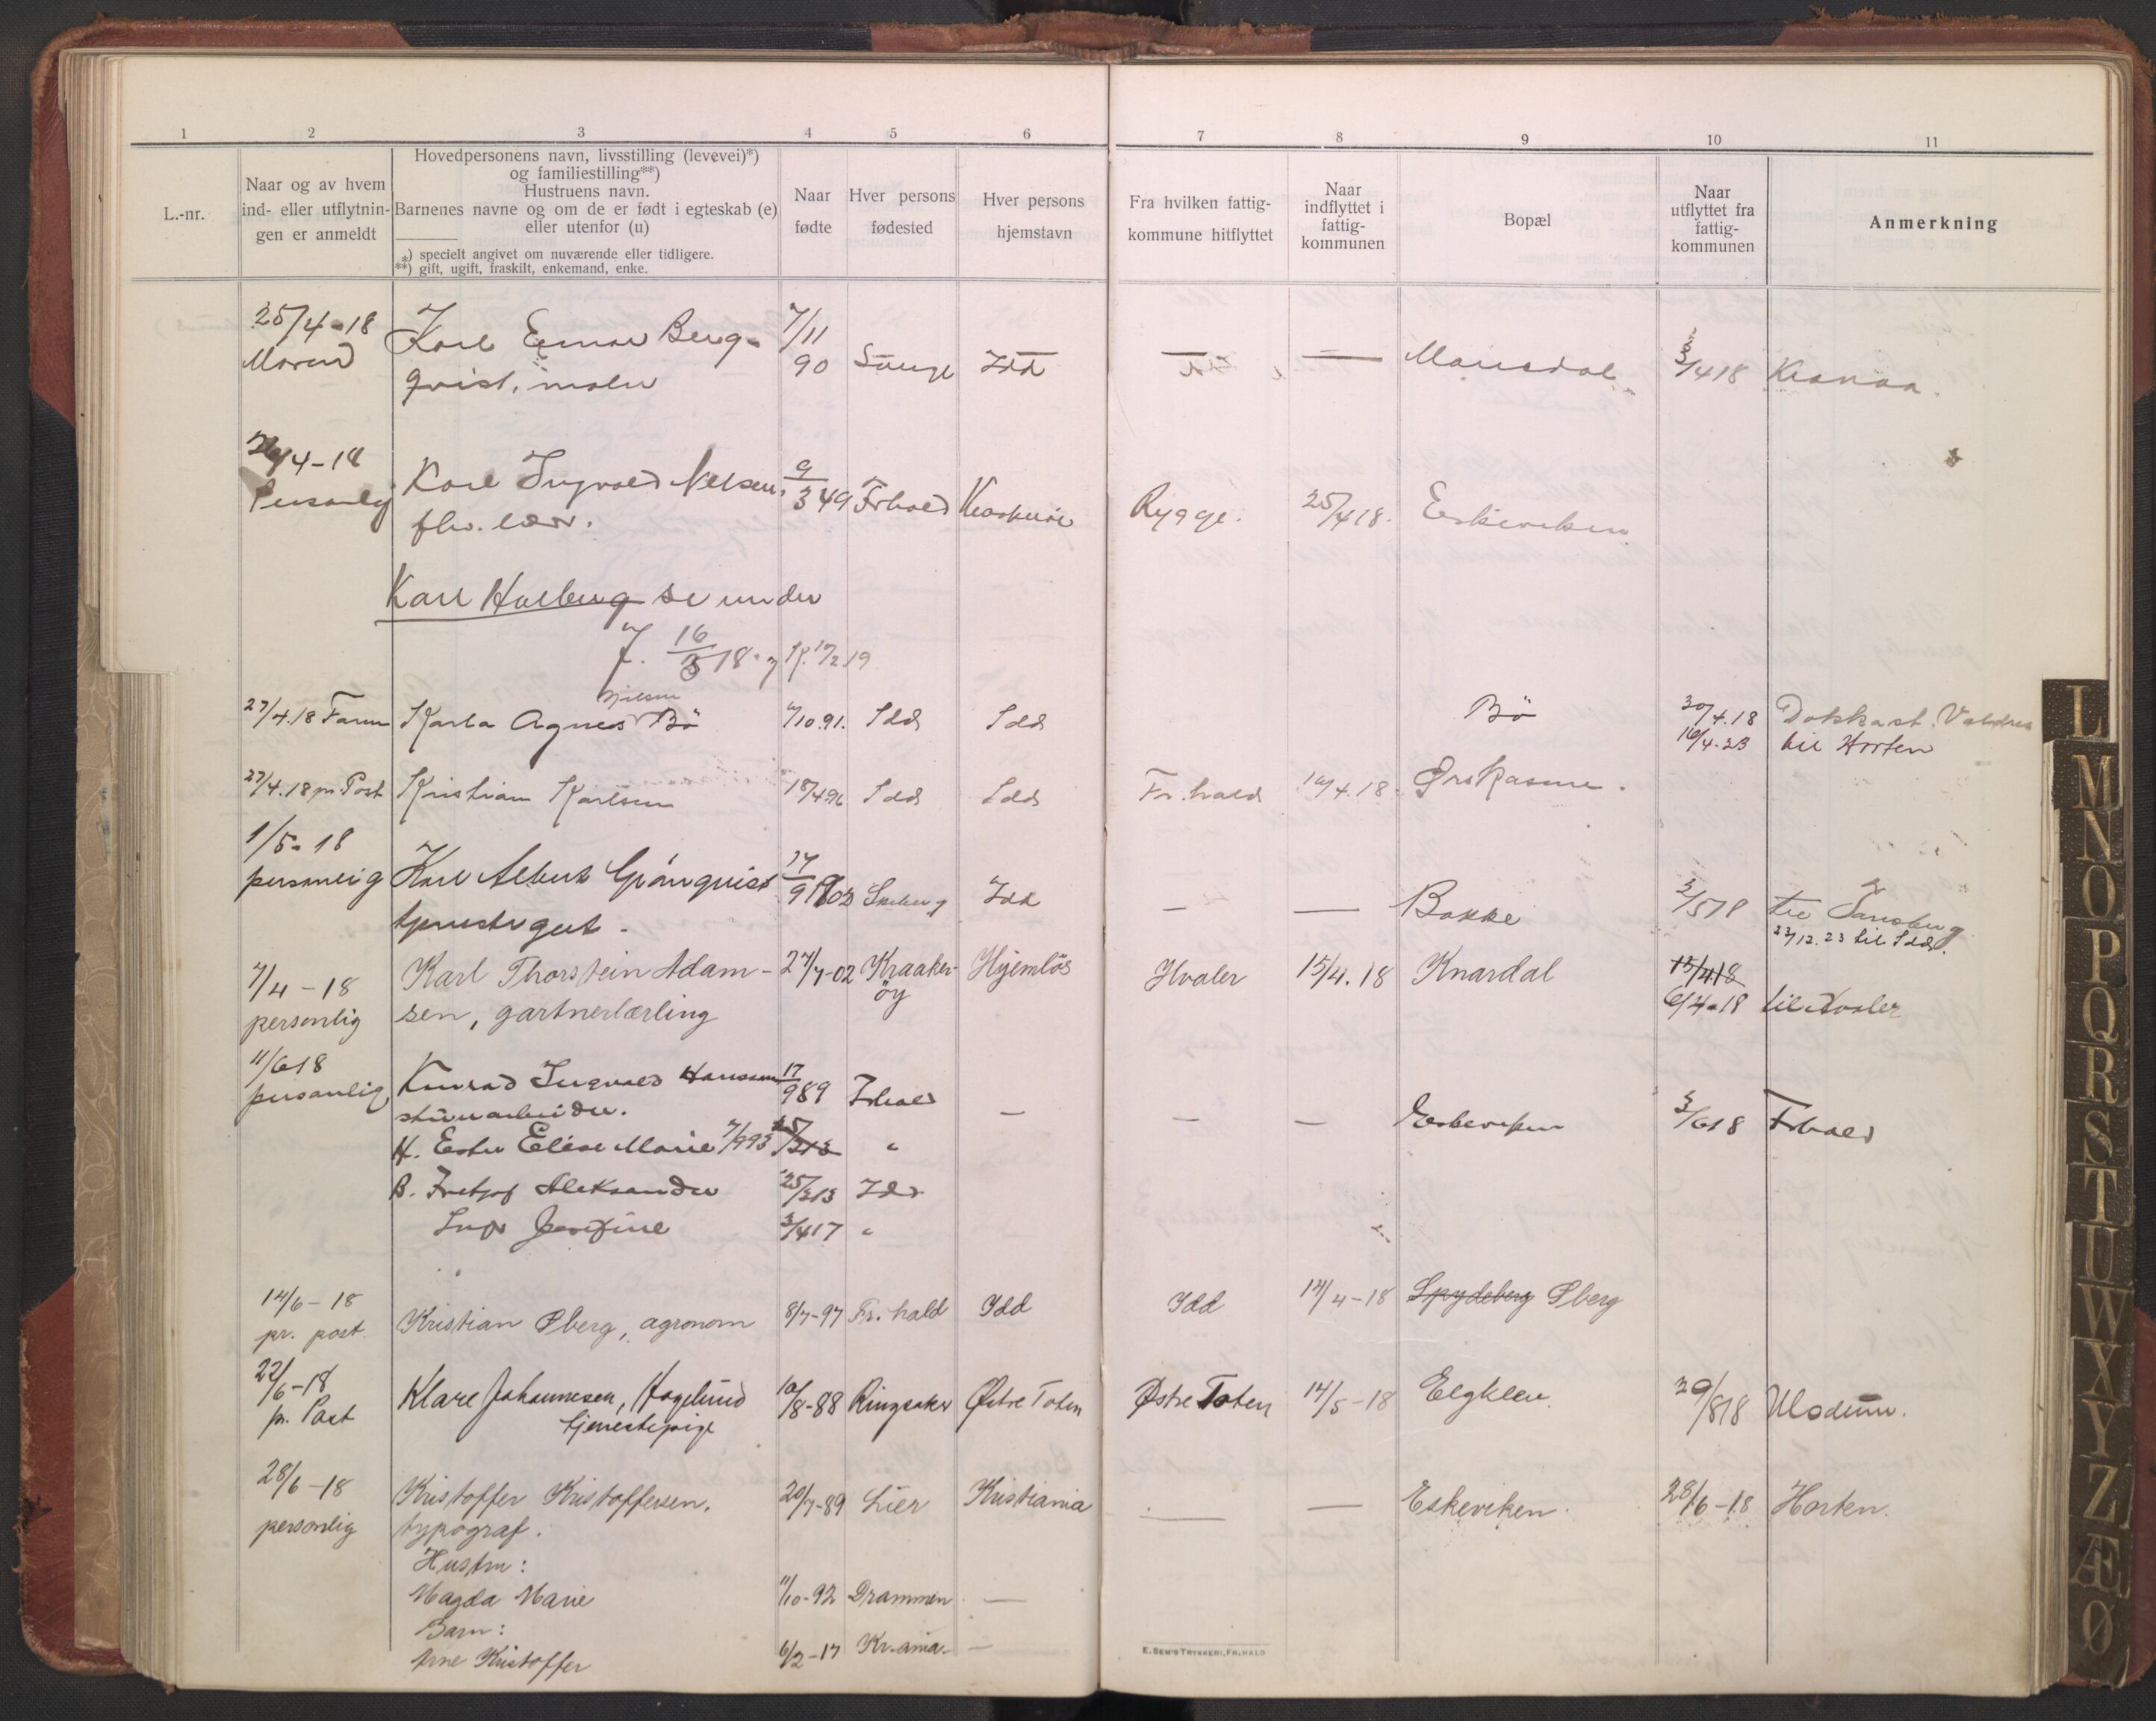 1 2 3 4 5 6 7 8 9 10 11
L.-nr.
Naar og av hvem
ind- eller utflytnin-
gen er anmeldt
Hovedpersonens navn, livsstilling (levevei)*)
og familiestilling**)
Hustruens navn.
Barnenes navne og om de er født i egteskab (e)
eller utenfor (u)
*) specielt angivet om nuværende eller tidligere.
**) gift, ugift, fraskilt, enkemand, enke.
Naar
fødte
Hver persons
fødested
Hver persons
hjemstavn
Fra hvilken fattig-
kommune hitflyttet
Naar
indflyttet i
fattig-
kommunen
Bopæl
Naar
utflyttet fra
fattig-
kommunen
Anmerkning
25/4-18 Karl Einar Berg- 7/11
90 Idd — Mansdal 3/4 18 Krania.
qvist, maler
26/4-18
Personlig Karl Ingvald Nelsen, 9/3 49 Frhald Kraakerøi Rygge. 25/4 18. Eskeviken
Karl Halberg se under
J. 16/3 18. og K. 17/2 19
Nilsen
27/4.18 Karla Agnes Bö 7/10.91. Idd Idd Bö 30/4.18 Dokkast. Valdres
16/4-23 til Horten
27/4.18 pr Post Kristian Karlsen 18/4 96 Idd Idd Fr.hald 10/4.18. Ørskasne.
1/5-18
personlig Karl Albert Grönquist 14/9 1902 Idd — — Bakke 3/5 18 til
tjenestegut.
23/12.23 til Idd.
7/4-18 Karl Thorstein Adam- 27/7-02 Kraaker- Hjemlös Hvaler 15/4.18 Knardal 15/4 18
personlig sen, gartnerlærling öy 6/4-18 til Hvaler
11/6 18
personlig Konrad Ingvald Hansen 17/9 89 Frhald — — — Eskeviken 3/6 18 Frhald
stenarbeider.
H. Ester Elise Marie 7/9 93 25/3 13 "
B. Fretjof Aleksander 25/3 13 Idd
Josefine 3/4 17 "
14/6-18
pr. post. Kristian Øberg, agronom 8/7-97 Fr.hald Idd Idd 14/4-18 Spydeberg Øberg
22/6-18
pr. Post Klare Johannesen, Hagelund 10/8-88 Ringsaker Østre Toten Østre Toten 14/5-18 Elgklev. 29/8 18 Modum.
tjenestepige
28/6-18
personlig Kristoffer Kristoffersen, 20/7-89 Lier Kristiania — — Eskeviken. 28/6-18 Horten.
typograf.
Hustru:
Magda Marie 11/10-92 Drammen —
Barn:
Arne Kristoffer 6/2-17 Kr.ania —
E. SEM'S TRYKKERI, FR.HALD
L
M
N
O
P
Q
R
S
T
U
W
X
Y
Z
Æ
Ø